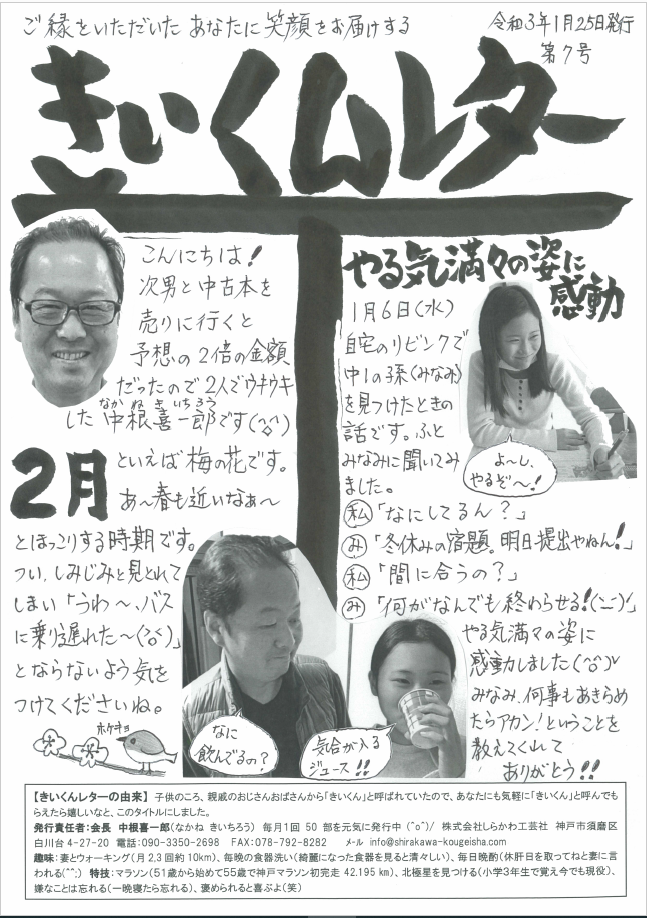 ご縁をいただいた あなたに笑顔をお届けする
令和3年1月25日発行
第7号
きいくんレター
こんにちは!
次男と中古本を
売りに行くと
予想の2倍の金額
だったので2人でウキウキ
なかねきいちろう
した 中根喜一郎です(^^)
2月
といえば 梅の花です。
あ〜春も近いなぁ〜
とほっこりする時期です。
つい、しみじみと見とれて
しまい「うわ〜、バス
に乗り遅れた〜(>ε<)」
とならないよう気を
つけてくださいね。
ホケキョ
やる気満々の姿に
感動
1月6日(水)
自宅のリビングで
中1の孫(みなみ)
を見つけたときの
話です。ふと
みなみに聞いてみ
ました。
よ〜し、
やるぞ〜!
私「なにしてるん?」
み「冬休みの宿題。明日提出やねん!」
私「間に合うの?」
み「何がなんでも終わらせる!(ー_ー)!」
やる気満々の姿に
感動しました(^^)v
みなみ、何事もあきらめ
たらアカン!ということを
教えてくれて
ありがとう!!
なに
飲んでるの?
気合が入る
ジュース!!
【きいくんレターの由来】 子供のころ、親戚のおじさんおばさんから「きいくん」と呼ばれていたので、あなたにも気軽に「きいくん」と呼んでも
らえたら嬉しいなと、このタイトルにしました。
発行責任者:会長 中根喜一郎(なかね きいちろう) 毎月1回 50 部を元気に発行中 (^o^)/ 株式会社しらかわ工芸社 神戸市須磨区
白川台 4-27-20 電話:090-3350-2698 FAX:078-792-8282 メール info@shirakawa-kougeisha.com
趣味:妻とウォーキング(月 2,3 回約 10km)、毎晩の食器洗い(綺麗になった食器を見ると清々しい)、毎日晩酌(休肝日を取ってねと妻に言
われる(^^;) 特技:マラソン(51歳から始めて55歳で神戸マラソン初完走 42.195 km)、北極星を見つける(小学3年生で覚え今でも現役)、
嫌なことは忘れる(一晩寝たら忘れる)、褒められると喜ぶよ(笑)